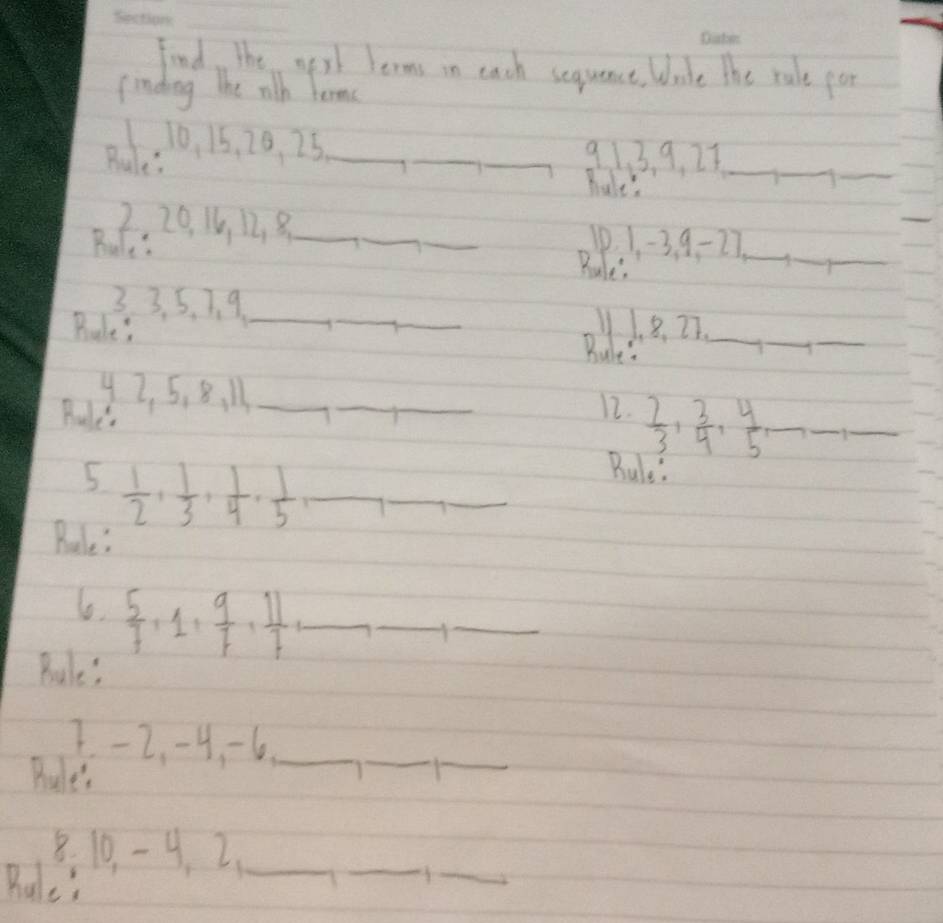 Section: Date:
Find the next terms in each sequence. Write the rule for
finding the nth terms
1. 10, 15, 20, 25, ___, ___, ___
Rule:
2. 20, 16, 12, 8, ___, ___, ___
Rule:
3. 3, 5, 7, 9, ___, ___, ___
Rule:
4. 2, 5, 8, 11, ___, ___, ___
Rule:
5. 1/2, 1/3, 1/4, 1/5, ___, ___, ___
Rule:
6. 5/7, 1, 9/7, 11/7, ___, ___, ___
Rule:
7. -2, -4, -6, ___, ___, ___
Rule:
8. 10, -4, 2, ___, ___, ___
Rule:
9. 1, 3, 9, 27, ___, ___, ___
Rule:
10. 1, -3, 9, -27, ___, ___, ___
Rule:
11. 1, 8, 27, ___, ___, ___
Rule:
12. 2/3, 3/4, 4/5, ___, ___, ___
Rule: